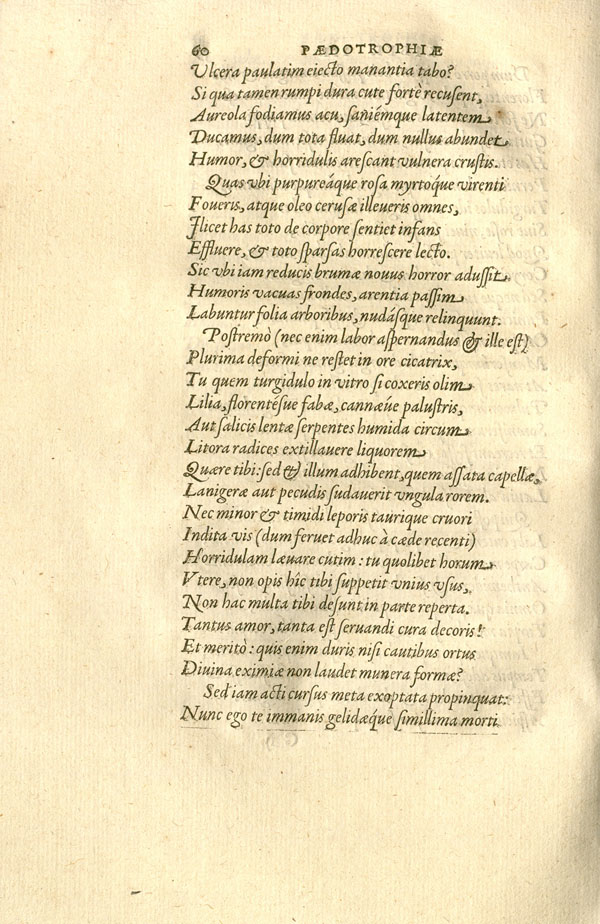 60 PÆDOTROPHIÆ
Vlcera paulatim eiecto manantia tabo?
Si qua tamen rumpi dura cute fortè recusent,
Aureola fodiamus acu, saniémque latentem
Ducamus, dum tota fluat, dum nullus abundet
Humor, & horridulis arescant vulnera crustis.
Quas vbi purpureáque rosa myrtóque virenti
Foueris, atque oleo cerusæ illeueris omnes,
Ilicet has toto de corpore sentiet infans
Effluere, & toto sparsas horrescere lecto.
Sic vbi iam reducis brumæ nouus horror adussit
Humoris vacuas frondes, arentia passim
Labuntur folia arboribus, nudásque relinquunt.
Postremò (nec enim labor aspernandus & ille est)
Plurima deformi ne restet in ore cicatrix,
Tu quem turgidulo in vitro si coxeris olim
Lilia, florentésue fabæ, cannæúe palustris,
Aut salicis lentæ serpentes humida circum
Litora radices extillauere liquorem
Quære tibi: sed & illum adhibent, quem assata capellæ,
Lanigeræ aut pecudis sudauerit vngula rorem.
Nec minor & timidi leporis taurique cruori
Indita vis (dum feruet adhuc à cæde recenti)
Horridulam læuare cutim: tu quolibet horum
Vtere, non opis hîc tibi suppetit vnius vsus,
Non hac multa tibi desunt in parte reperta.
Tantus amor, tanta est seruandi cura decoris!
Et meritò: quis enim duris nisi cautibus ortus
Diuina eximiæ non laudet munera formæ?
Sed iam acti cursus meta exoptata propinquat:
Nunc ego te immanis gelidæque simillima morti